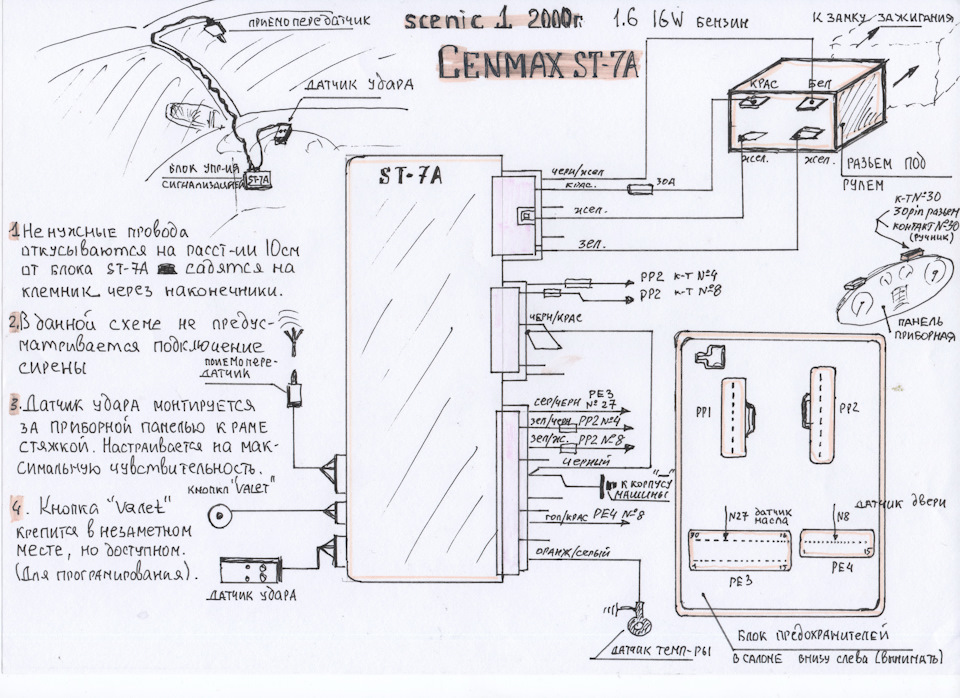 scenic 1 2000г. 1.6 16W бензин
CENMAX ST-7A
К ЗАМКУ ЗАЖИГАНИЯ
ПРИЕМОПЕРЕДАТЧИК
ДАТЧИК УДАРА
БЛОК УПР-ИЯ
СИГНАЛИЗАЦИЕЙ
ST-7A
КРАС
БЕЛ
ЖЕЛ.
ЖЕЛ.
РАЗЬЕМ ПОД
РУЛЕМ
К-Т №30
30pin разьем
КОНТАКТ №30
(РУЧНИК)
ПАНЕЛЬ
ПРИБОРНАЯ
1. Не нужные провода
откусываются на расст-ии 10см
от блока ST-7A садятся на
клемник через наконечники.
2. В данной схеме не предус-
матривается подключение
сирены
ПРИЕМОПЕРЕ-
ДАТЧИК
3. Датчик удара монтируется
за приборной панелью к раме
стяжкой. Настраивается на мак-
симальную чувствительность.
КНОПКА "VALET"
4. Кнопка "Valet"
крепится в незаметном
месте, но доступном.
(Для програмирования).
ДАТЧИК УДАРА
ST-7A
ЧЕРН/ЖЕЛ
КРАС.
30А
ЖЕЛ.
ЗЕЛ.
PP2 К-Т №4
PP2 К-Т №8
ЧЕРН/КРАС
СЕР/ЧЕРН PE3
№27
ЗЕЛ/ЧЕРН PP2 №4
ЗЕЛ/Ж. PP2 №8
ЧЕРНЫЙ
"—"
К КОРПУСУ
МАШИНЫ
ГОЛ/КРАС PE4 №8
ОРАНЖ/СЕРЫЙ
ДАТЧИК ТЕМП-РЫ
PP1
PP2
N27 датчик
масла
N8
ДАТЧИК ДВЕРИ
30
16
1
15
15
PE3
PE4
БЛОК ПРЕДОХРАНИТЕЛЕЙ
В САЛОНЕ ВНИЗУ СЛЕВА (ВЫНИМАТЬ)